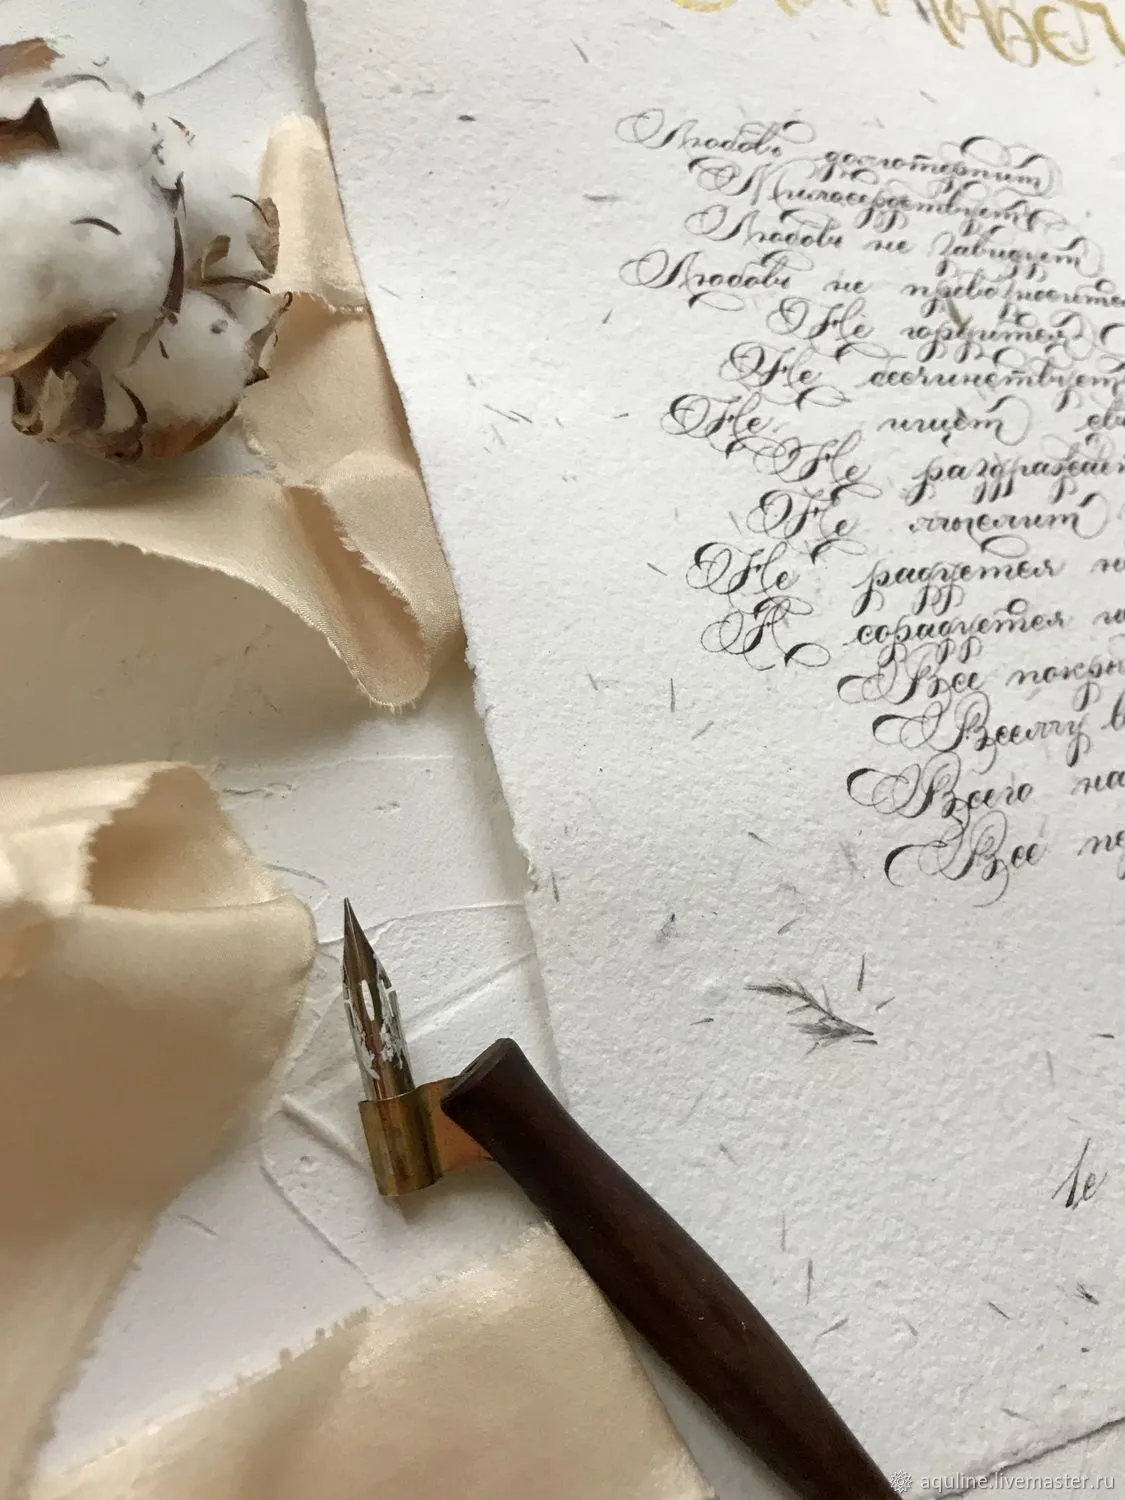 Любовь долготерпит
Милосердствует
Любовь не завидует
Любовь не превозносится
Не гордится
Не бесчинствует
Не ищет
Не раздражает
Не мыслит
Не радуется
А сорадуется
Все покры
Всему в
Всего на
Все пе
1c
aquline.livemaster.ru